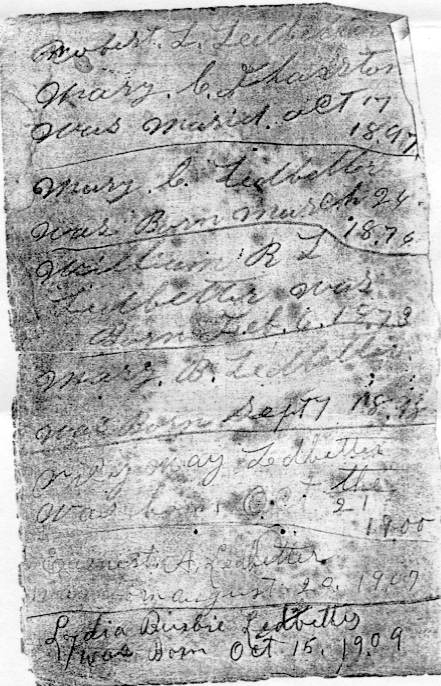 Robert. L. Ledbetter
Mary. C.
was marid. oct 17
18.97
Mary. C. Ledbetter
was Born march 24.
18.76
William R L
Ledbetter was
Born Feb. 6. 18.73
Mary. B. Ledbetter.
was Born Sept 7 18.98
may Ledbetter
was born Oct the
21
1900
Earnest. A. Ledbetter
august. 20, 1907
Lydia Ledbetter
was Born Oct 15, 1909